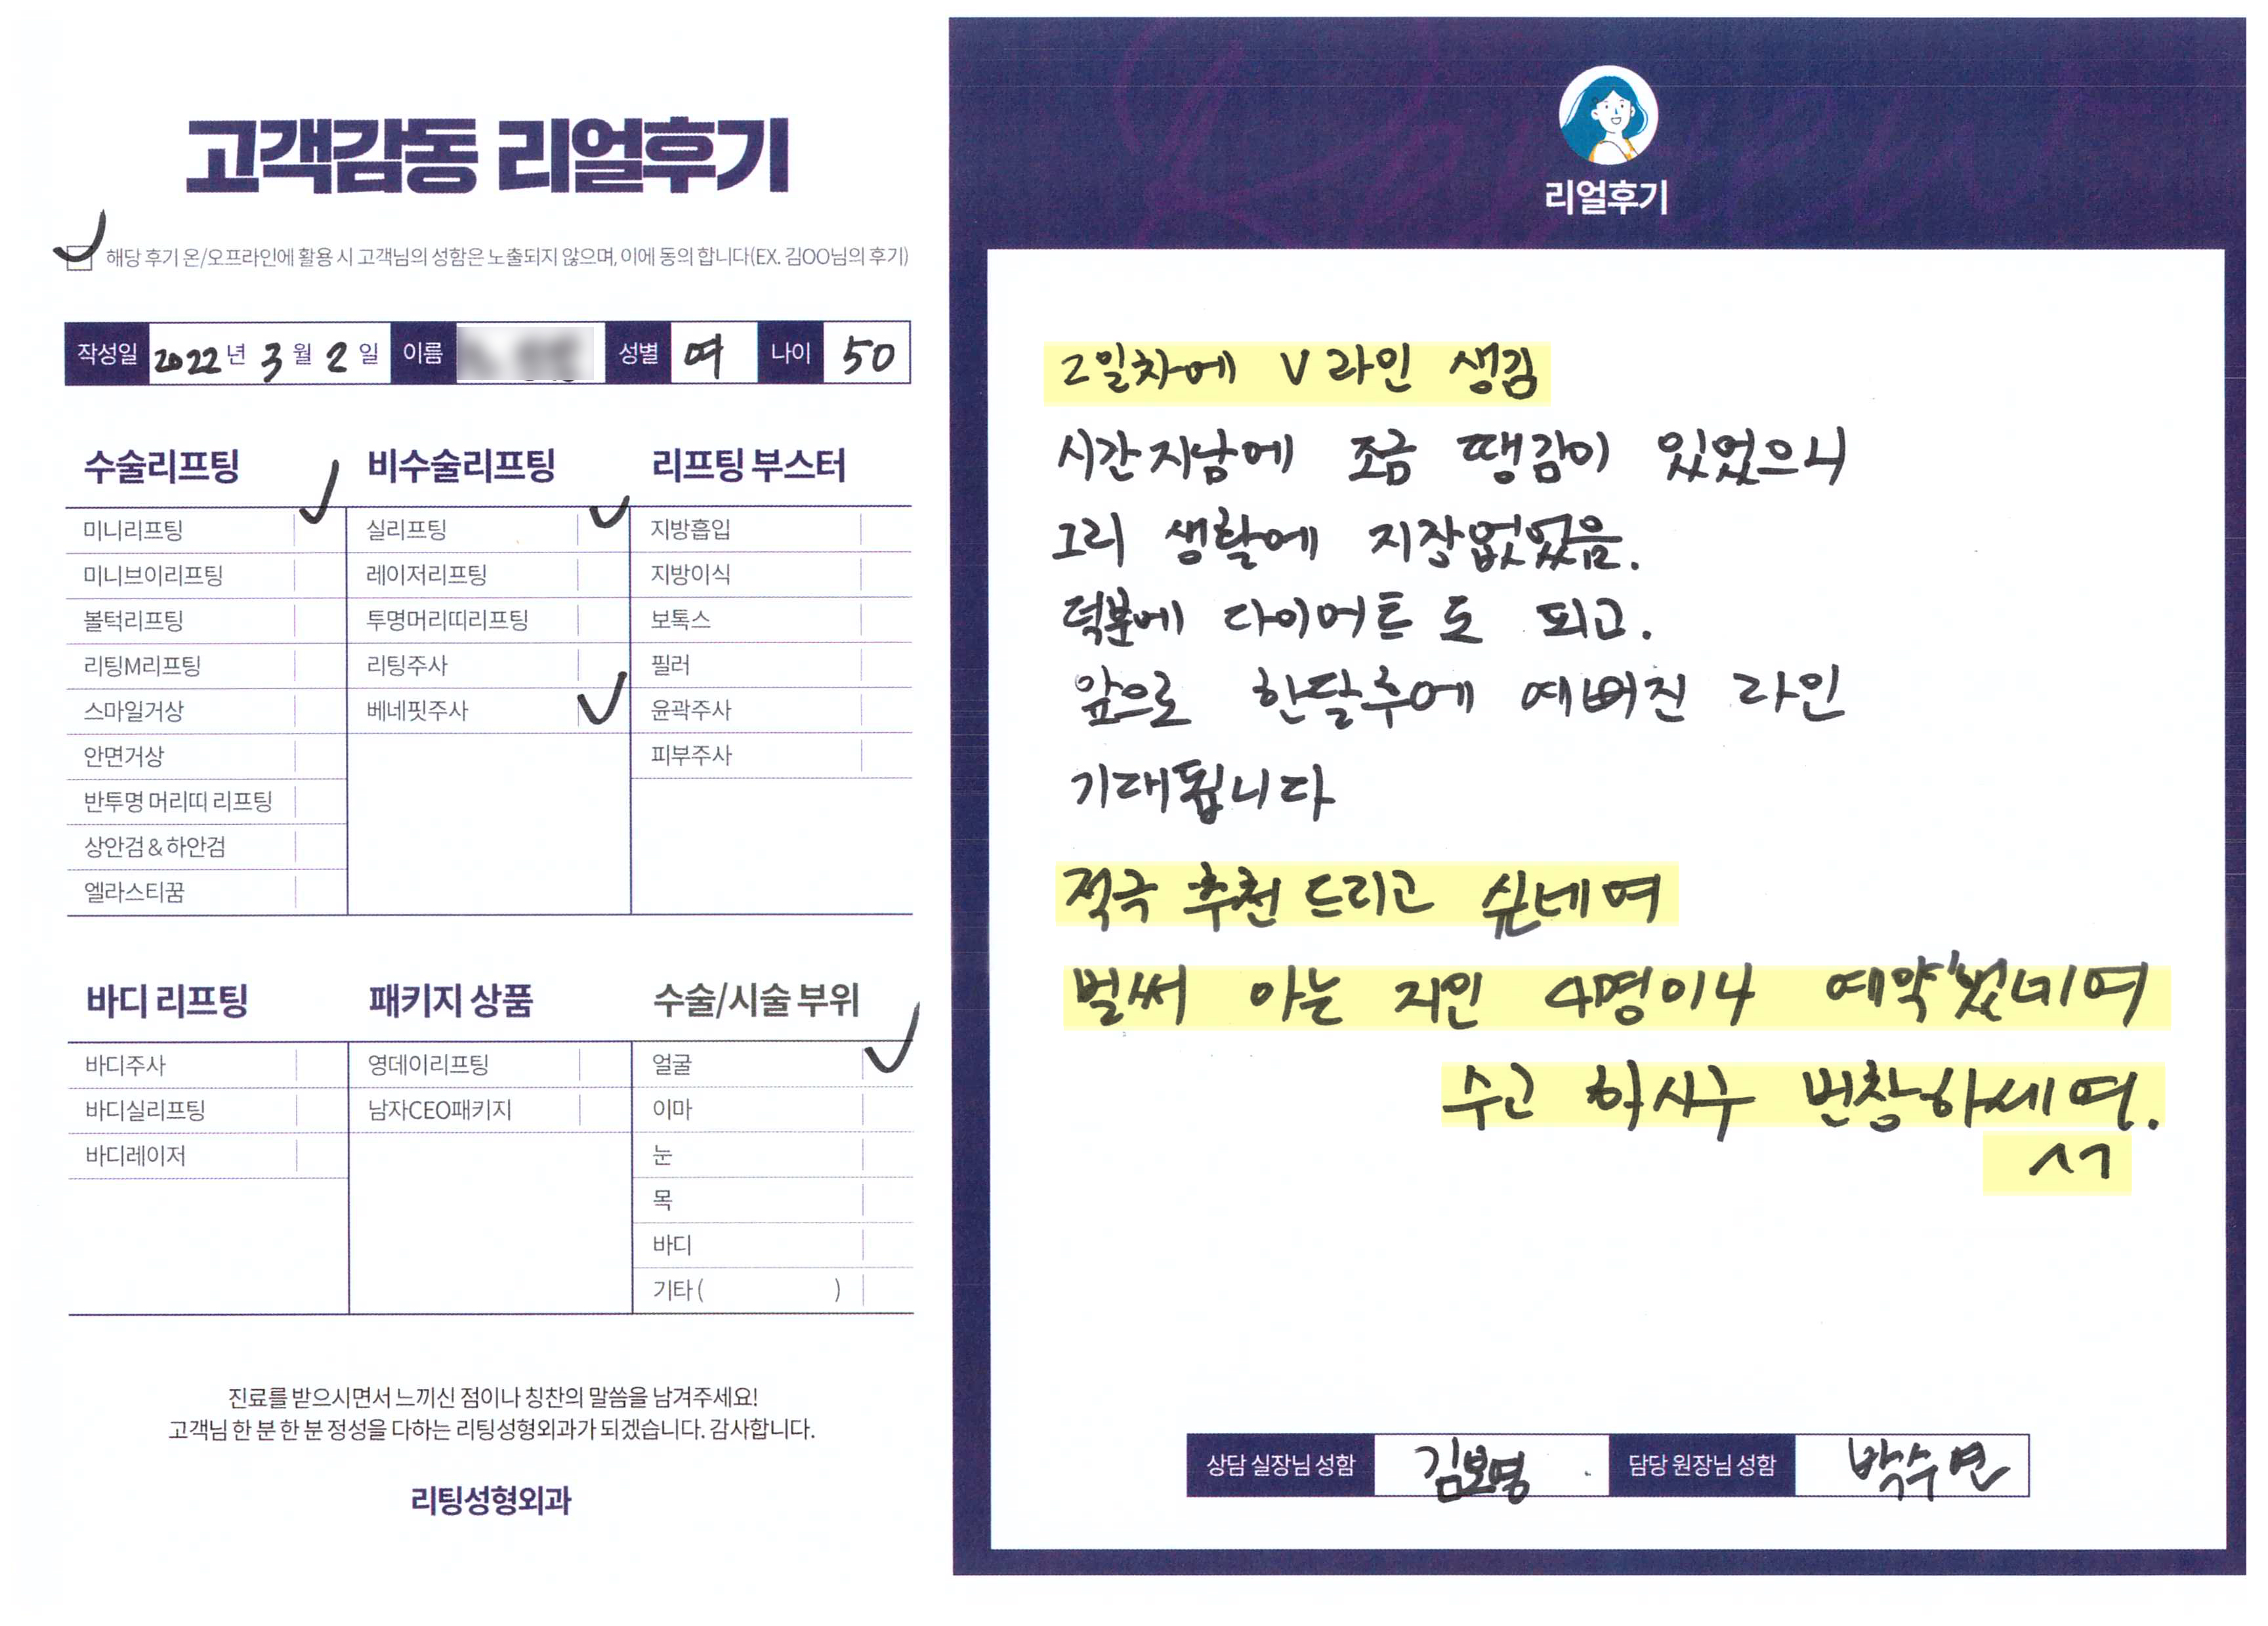 고객감동 리얼후기
해당 후기 온/오프라인에 활용 시 고객님의 성함은 노출되지 않으며, 이에 동의 합니다(EX. 김OO님의 후기)
작성일 2022년 3월 2일 이름 성별 여 나이 50
수술리프팅
미니리프팅
미니브이리프팅
볼턱리프팅
리팅M리프팅
스마일거상
안면거상
반투명 머리띠 리프팅
상안검 & 하안검
엘라스티꿈
비수술리프팅
실리프팅
레이저리프팅
투명머리띠리프팅
리팅주사
베네핏주사
리프팅 부스터
지방흡입
지방이식
보톡스
필러
윤곽주사
피부주사
바디 리프팅
바디주사
바디실리프팅
바디레이저
패키지 상품
영데이리프팅
남자CEO패키지
수술/시술 부위
얼굴
이마
눈
목
바디
기타 ( )
진료를 받으시면서 느끼신 점이나 칭찬의 말씀을 남겨주세요!
고객님 한 분 한 분 정성을 다하는 리팅성형외과가 되겠습니다. 감사합니다.
리팅성형외과
리얼후기
2일차에 V라인 생김
시간지남에 조금 땡감이 있었으니
그리 생활에 지장없었음.
덕분에 다이어트도 되고.
앞으로 한달후에 예뻐진 라인
기대됩니다
적극 추천드리고 싶네여
벌써 아는 지인 4명이나 예약했네여
수고 하시구 번창하세여.
^^
상담 실장님 성함 김보영 담당 원장님 성함 박수연